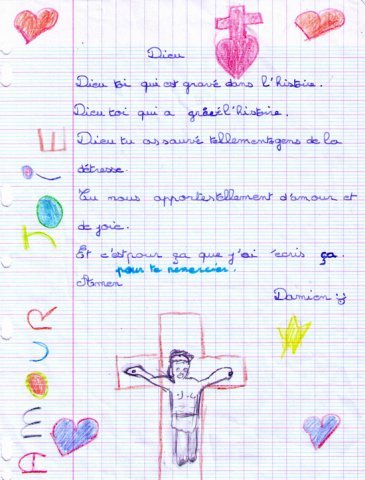 Dieu
Dieu toi qui est gravé dans l'histoire.
Dieu toi qui a gréée l'histoire.
Dieu tu as sauvé tellement gens de la
détresse.
Tu nous apportes tellement d'amour et
de joie.
Et c'est pour ça que j'ai écris ça.
pour te remercier.
Amen
Damien :)
AMOUR JOIE
J.C